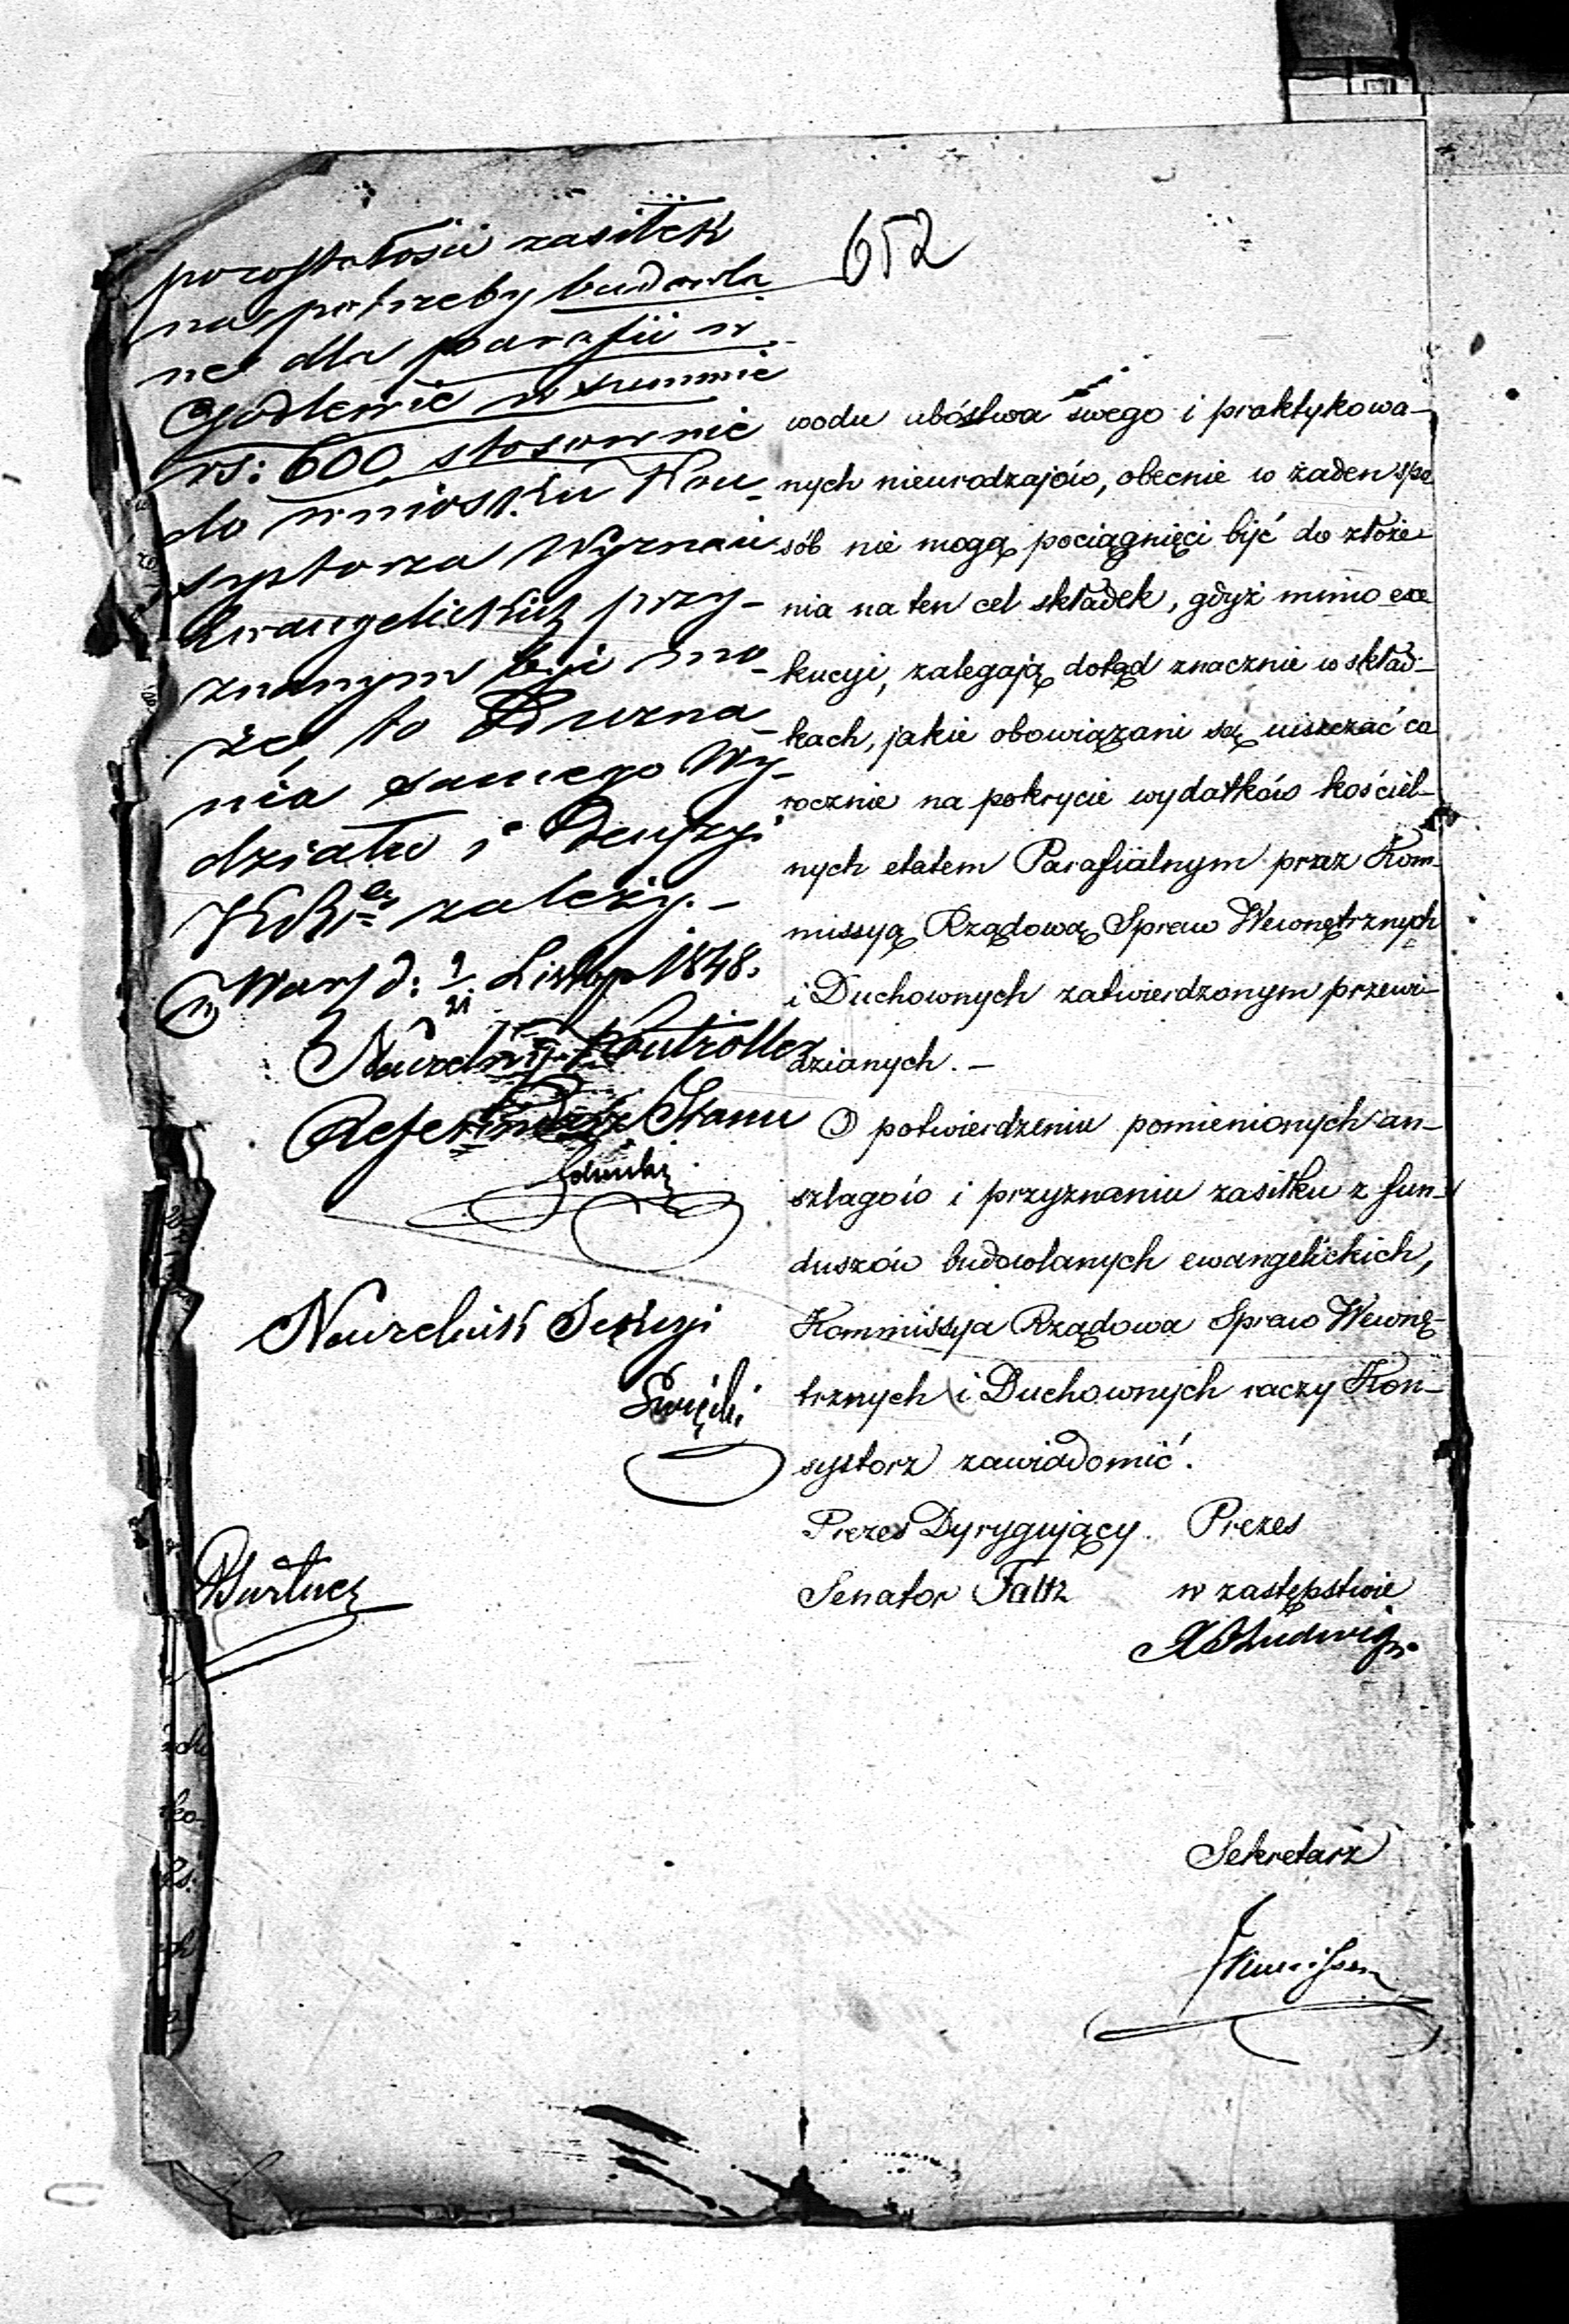 652
pozostałości zasiłek
na potrzeby budowla
ne dla parafii w
Godlewie w summie
rs: 600 stosownie
do wniosku Kon-
systorza Wyznań
Ewangelickich przy-
znanym być mo-
że, to od uzna-
nia samego Wy-
działu i Decyzyi
zależy. –
Warsz d: 9/21 Listop 1848.
Naczelny Kontroller
Referendarz Stanu
Naczelnik Sekcyi
Święcki
wodu ubóstwa swego i praktykowa-
nych nieurodzajów, obecnie w żaden spo
sób nie mogą pociągnięci być do złoże-
nia na ten cel składek, gdyż mimo exe
kucyi, zalegają dotąd znacznie w skład-
kach, jakie obowiązani są uiszczać co
rocznie na pokrycie wydatków kościel-
nych etatem Parafialnym przez Kom-
missyą Rządową Spraw Wewnętrznych
i Duchownych zatwierdzonym przewi-
dzianych. –
O potwierdzeniu pomienionych an-
szlagów i przyznaniu zasiłku z fun-
duszów budowlanych ewangelickich,
Kommissya Rządowa Spraw Wewnę-
trznych i Duchownych raczy Kon-
systorz zawiadomić.
Prezes Dyrygujący Prezes
Senator Faltz w zastępstwie
Ludwig
Sekretarz